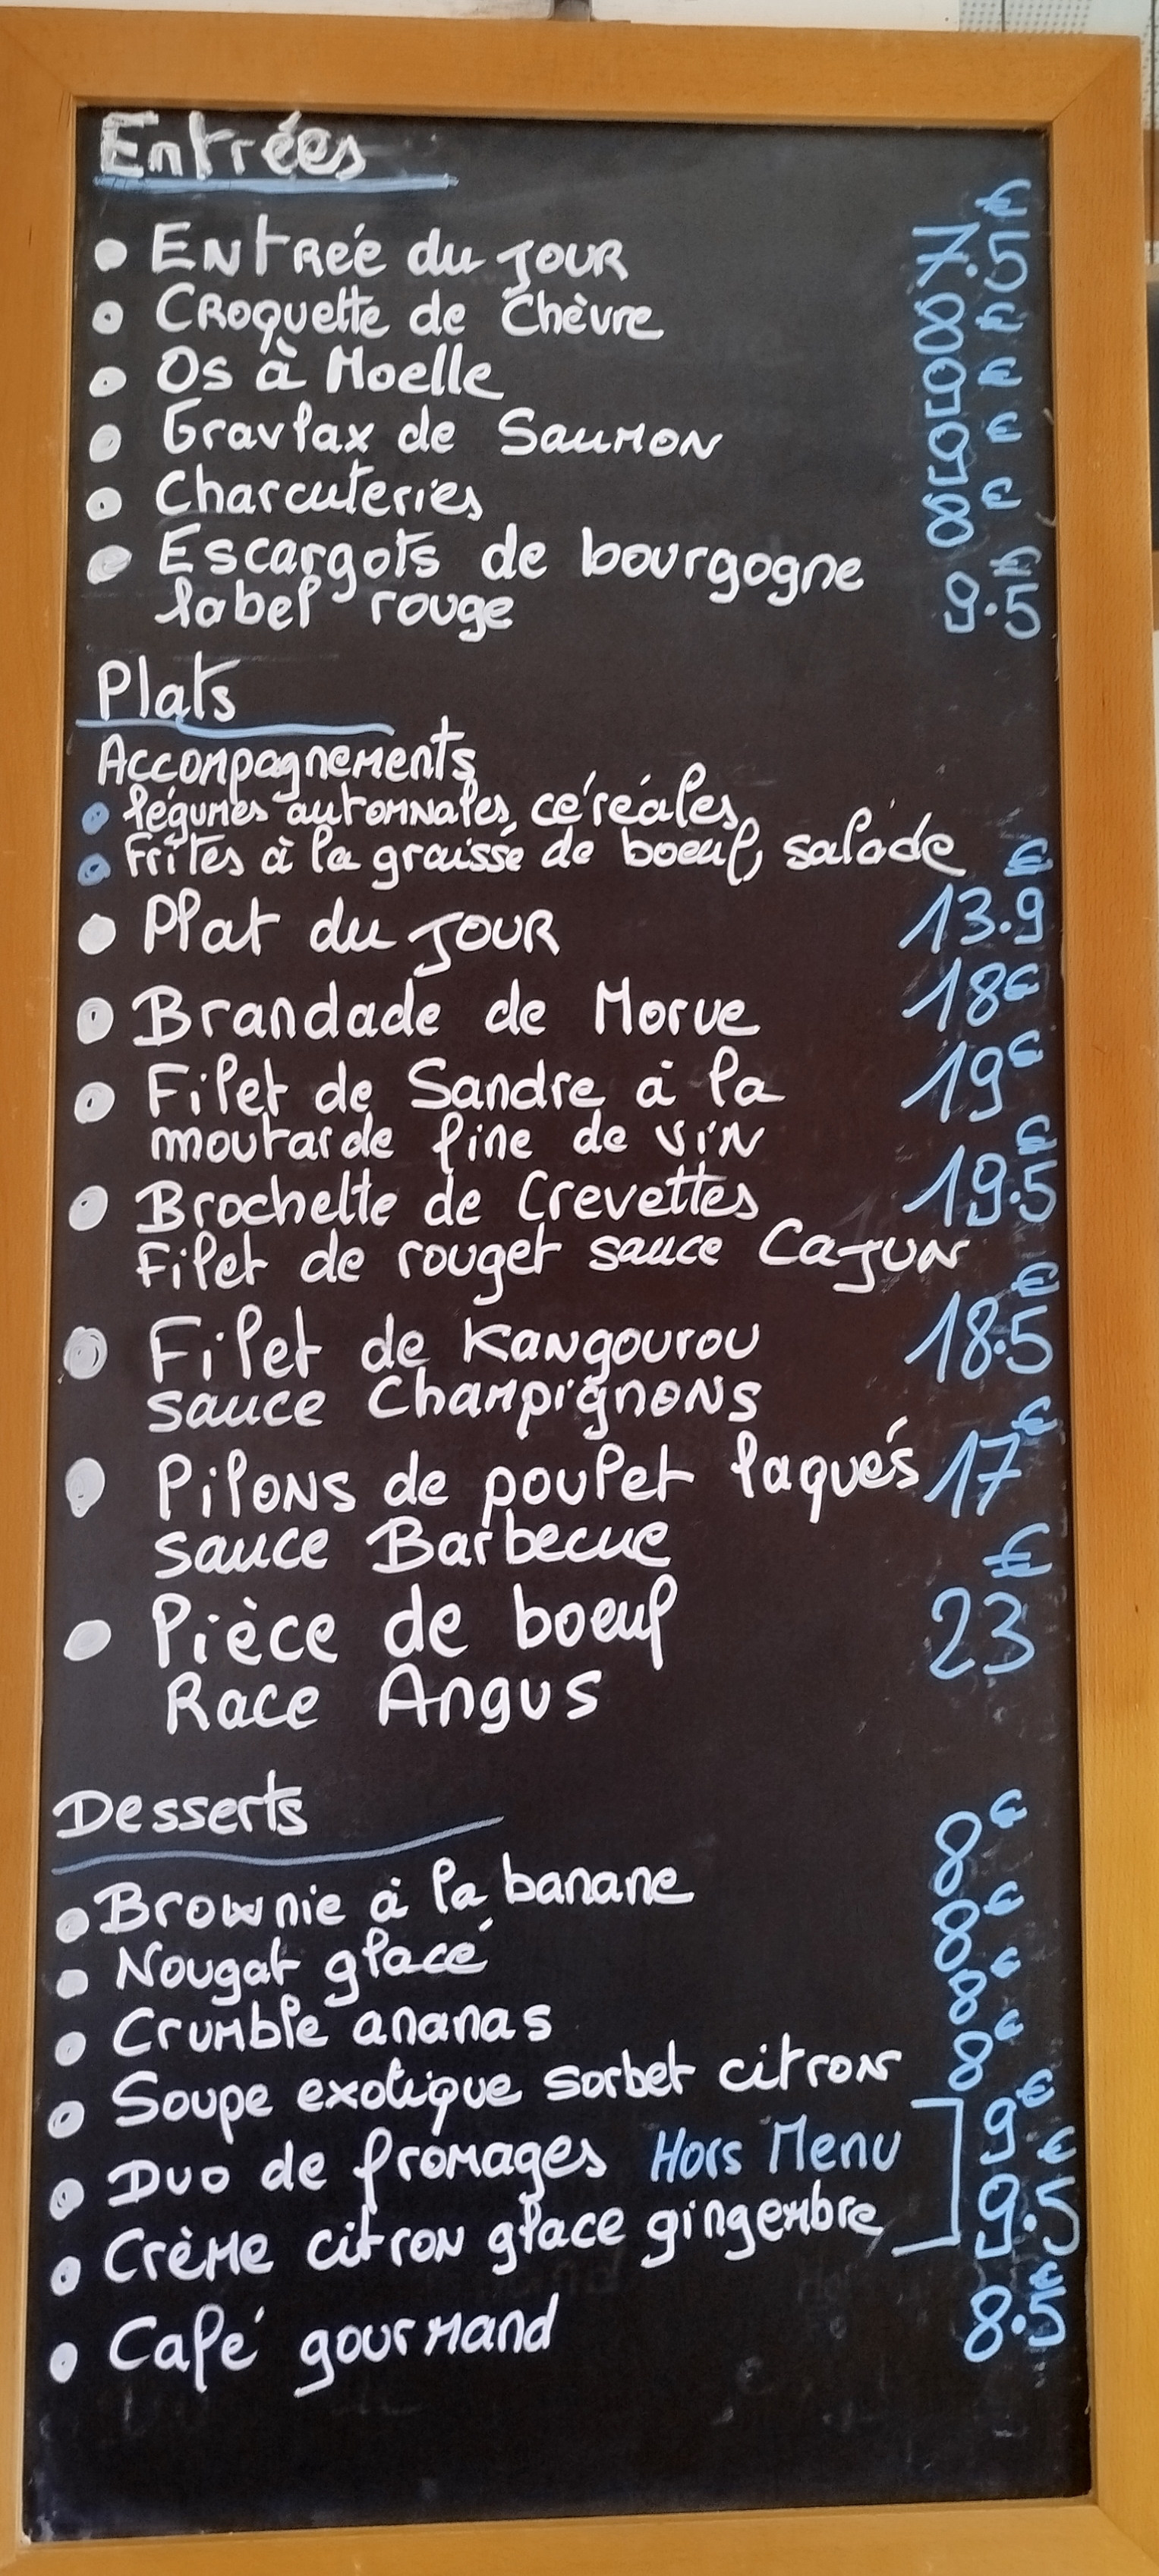 Entrées
Entrée du jour 7.5€
Croquette de Chèvre 8€
Os à Moelle 9€
Gravlax de Saumon 9€
Charcuteries 8€
Escargots de bourgogne
label rouge 9.5€
Plats
Accompagnements
légumes automnales, céréales,
Frites à la graisse de boeuf, salade
Plat du jour 13.9€
Brandade de Morue 18€
Filet de Sandre à la 19€
moutarde fine de vin
Brochette de Crevettes 19.5€
Filet de rouget sauce Cajun
Filet de Kangourou 18.5€
sauce Champignons
Pilons de poulet laqués 17€
sauce Barbecue
Pièce de boeuf 23€
Race Angus
Desserts
Brownie à la banane 8€
Nougat glacé 8€
Crumble ananas 8€
Soupe exotique sorbet citron 8€
Duo de fromages Hors Menu 9€
Crème citron glace gingembre 9.5€
Café gourmand 8.5€